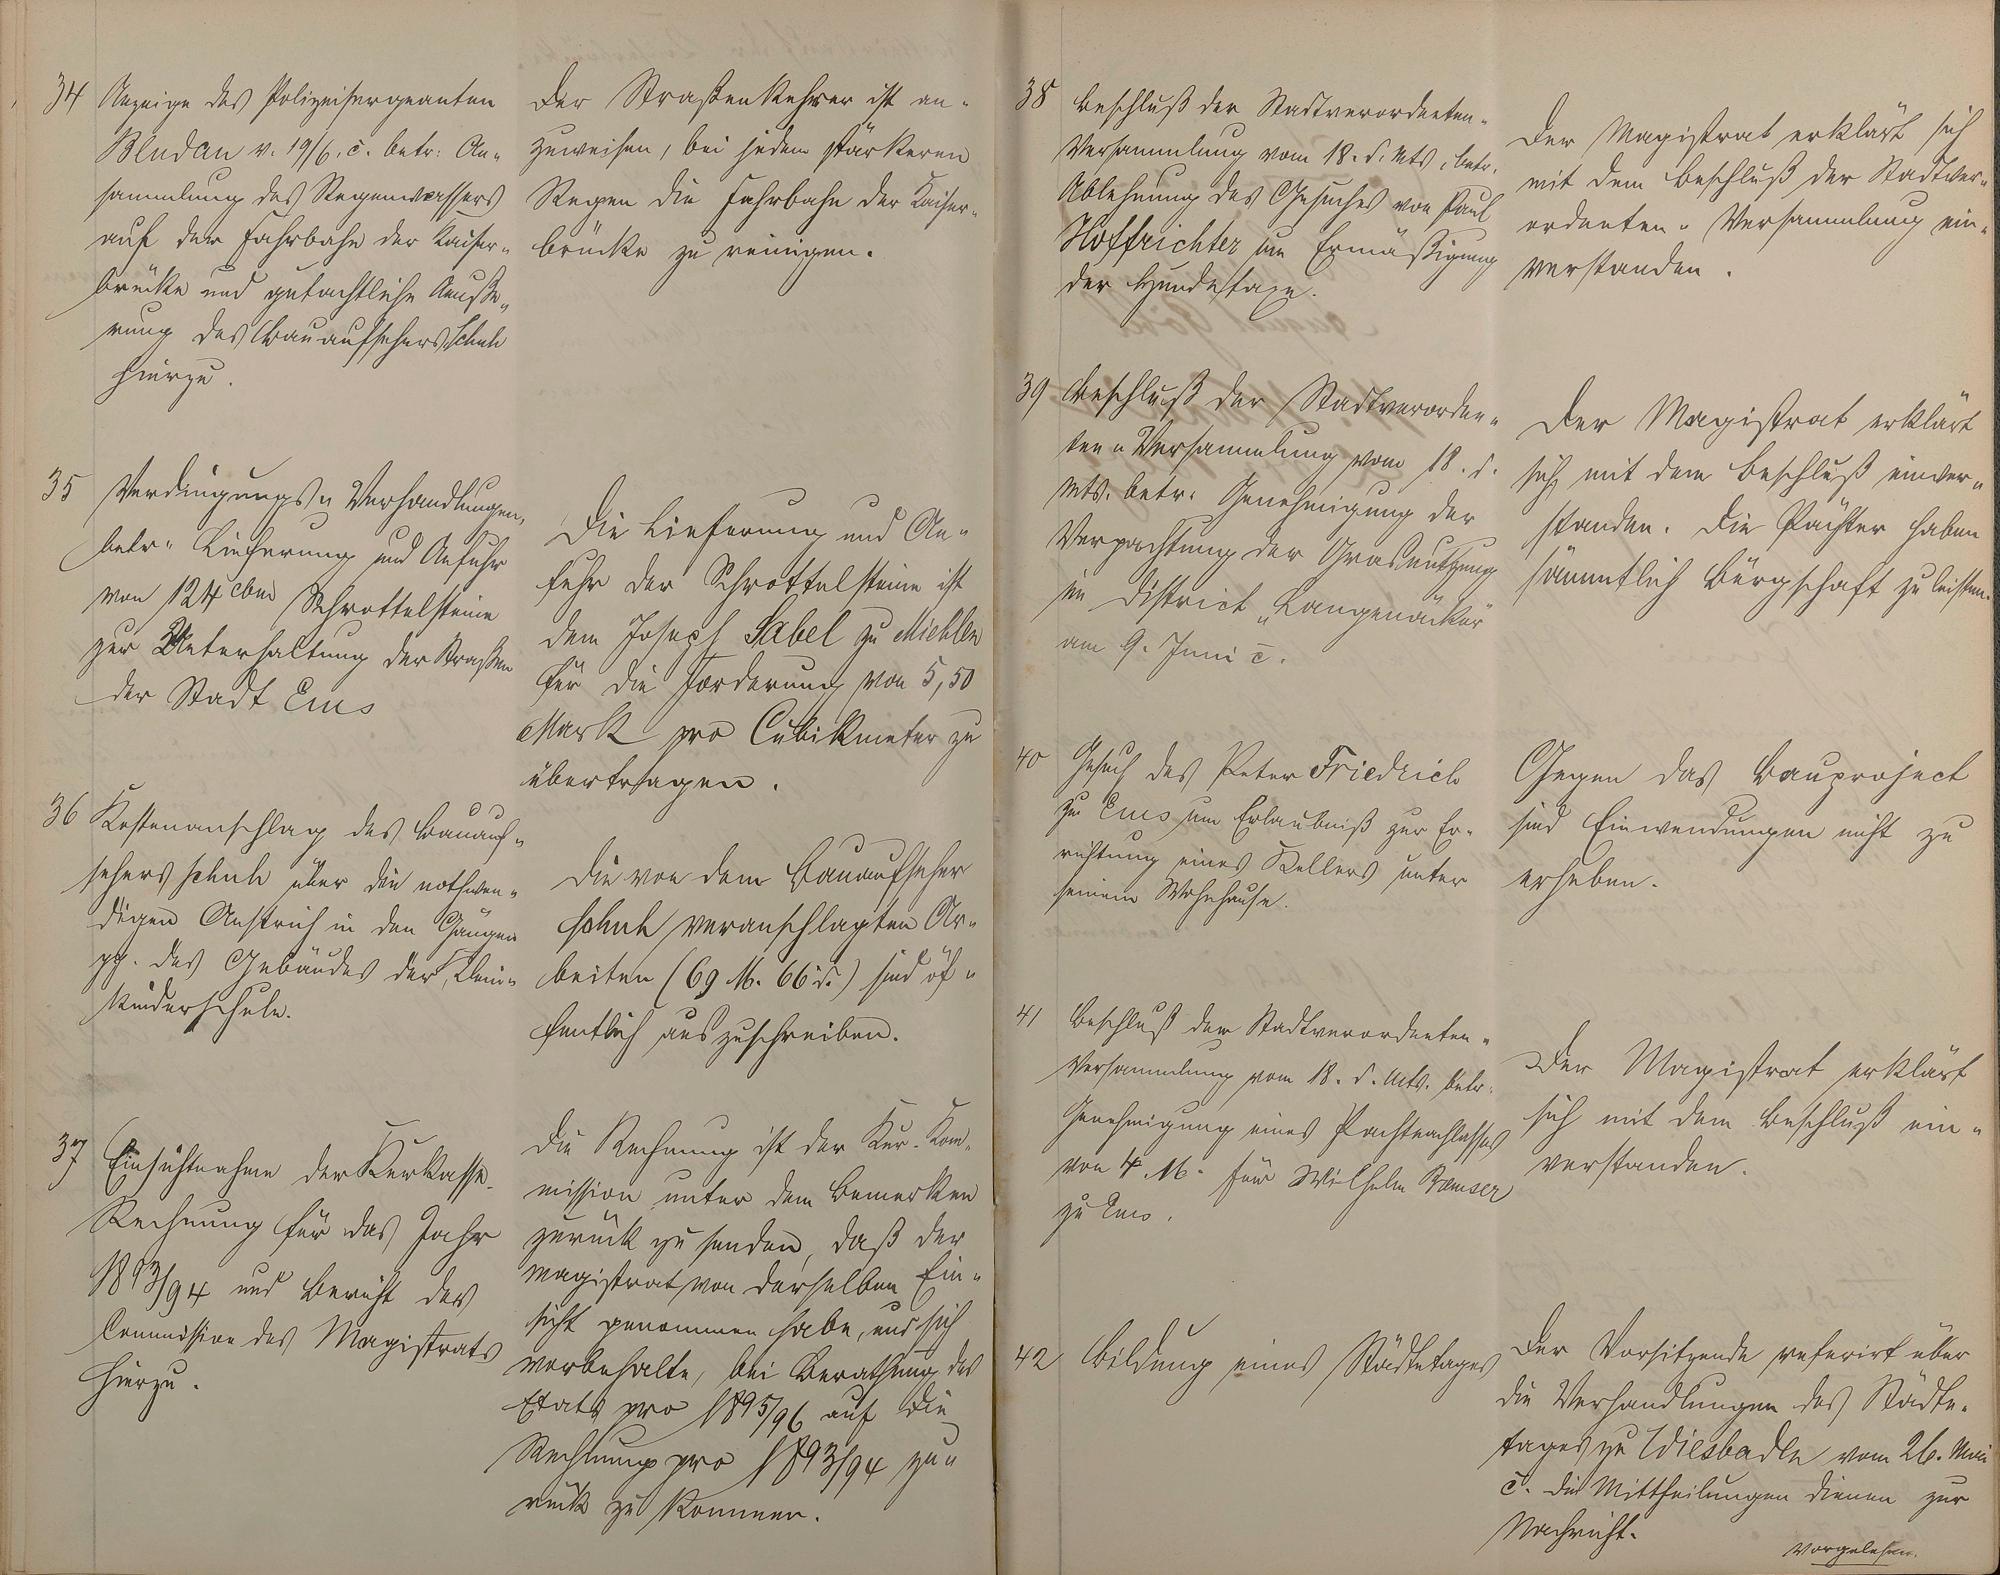 34
Anzeige des Polizeisergeanten
Bludau v. 19/6. c. betr. An-
sammlung des Regenwassers
auf der Fahrbahn der Kaiser-
brücke und gutachtliche Aeuße-
rung des Bauaufsehers Schuh
hierzu.
Der Straßenkehrer ist an-
zuweisen, bei jedem stärkeren
Regen die Fahrbahn der Kaiser-
brücke zu reinigen.
35
Verdingungs- Verhandlungen,
betr. Lieferung und Anfuhr
von 124 cbm Schrottelsteine
zur Unterhaltung der Straßen
der Stadt Ems
Die Lieferung und An-
fuhr der Schrottelsteine ist
dem Joseph Sabel zu Miehlen
für die Forderung von 5,50
Mark pro Cubikmeter zu
übertragen.
36
Kostenanschlag des Bauauf-
sehers Schuh über die nothwen-
digen Anstrich in den Gängen
pp. des Gebäudes der Klein-
kinderschule.
Die von dem Bauaufseher
Schuh veranschlagten Ar-
beiten (69 M. 66 d.) sind öf-
fentlich auszuschreiben.
37
Einsichtnahme der Kurkasse-
Rechnung für das Jahr
1893/94 und Bericht der
Commission des Magistrats
hierzu.
Die Rechnung ist der Kur-Kom-
mission unter dem Bemerken
zurück zu senden, daß der
Magistrat von derselben Ein-
sicht genommen habe, und sich
vorbehalte, bei Berathung des
Etats pro 1895/96 auf die
Rechnung pro 1893/94 zu-
rück zu kommen.
38
Beschluß der Stadtverordneten-
Versammlung vom 18. d. Mts. betr.
Ablehnung des Gesuches von Paul
Hoffrichter um Ermäßigung
der Hundetaxe.
Der Magistrat erklärt sich
mit dem Beschluß der Stadtver-
ordneten-Versammlung ein-
verstanden.
39
Beschluß der Stadtverordne-
ten-Versammlung vom 18. d.
Mts. betr. Genehmigung der
Verpachtung der Grasnutzung
im District „Langenäcker"
am 9. Juni c.
Der Magistrat erklärt
sich mit dem Beschluß einver-
standen. Die Pächter haben
sämmtlich Bürgschaft zu leisten.
40
Gesuch des Peter Friedrich
zu Ems um Erlaubniß zur Er-
richtung eines Kellers unter
seinem Wohnhause.
Gegen das Bauproject
sind Einwendungen nicht zu
erheben.
41
Beschluß der Stadtverordneten-
Versammlung vom 18. d. Mts. betr.
Genehmigung eines Pachtnachlasses
von 4 M. für Wilhelm Bamser
zu Ems.
Der Magistrat erklärt
sich mit dem Beschluß ein-
verstanden.
42
Bildung eines Städtetages
Der Vorsitzende referirt über
die Verhandlungen des Städte-
tages zu Wiesbaden vom 26. Mai
c. Die Mittheilungen dienen zur
Nachricht.
Vorgelesen.